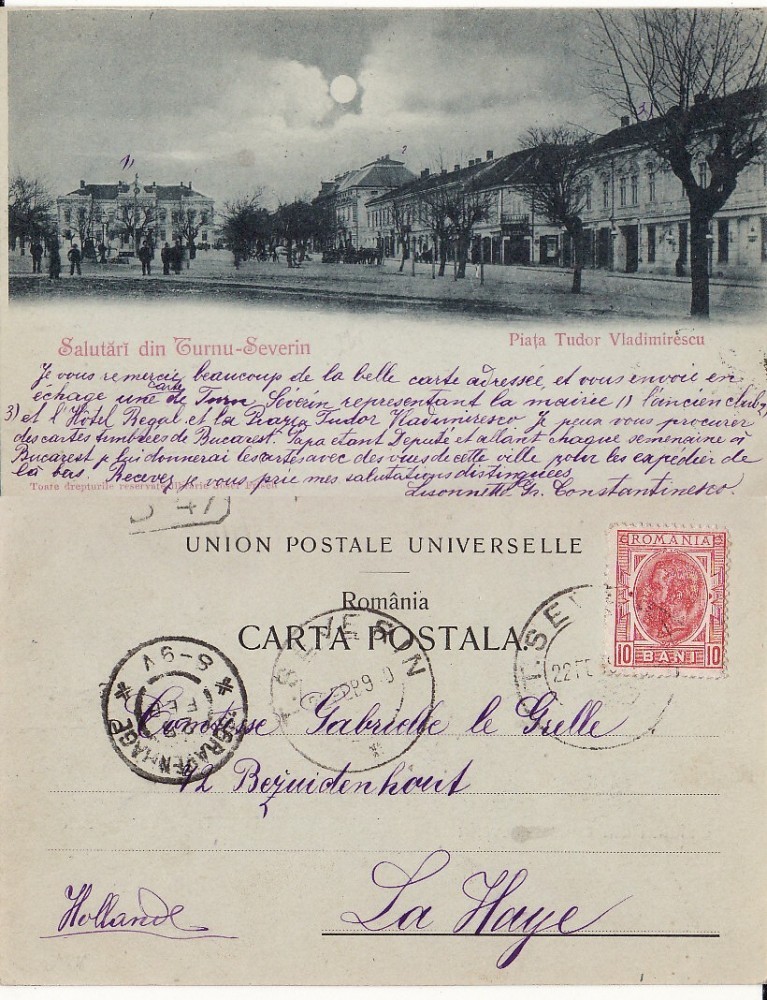 1)
2
3)
Salutări din Turnu-Severin
Piața Tudor Vladimirescu
Je vous remercie beaucoup de la belle carte adressée, et vous envoie en
échage une carte de Turn Severin representant la mairie 1) l'ancien club 2)
3) et l'Hôtel Regal et la Piazza Tudor Vladimiresco Je peux vous procurer
des cartes timbrées de Bucarest. Papa etant Depute et allant chaque semenaine à
Bucarest je lui donnerai les cartes avec des vues de cette ville pour les expédier de
là bas. Recevez je vous prie mes salutations distinguées
Toate drepturile reservate
Gr. Constantinesco.
UNION POSTALE UNIVERSELLE
România
CARTA POSTALA.
ROMANIA
10 BANI 10
T. SEVERIN
T. SEV
22 FE
S'GRAVENHAGE
8-9V
FEB
Comtesse Gabrielle le Grelle
42 Bezuidenhout
La Haye
Hollande